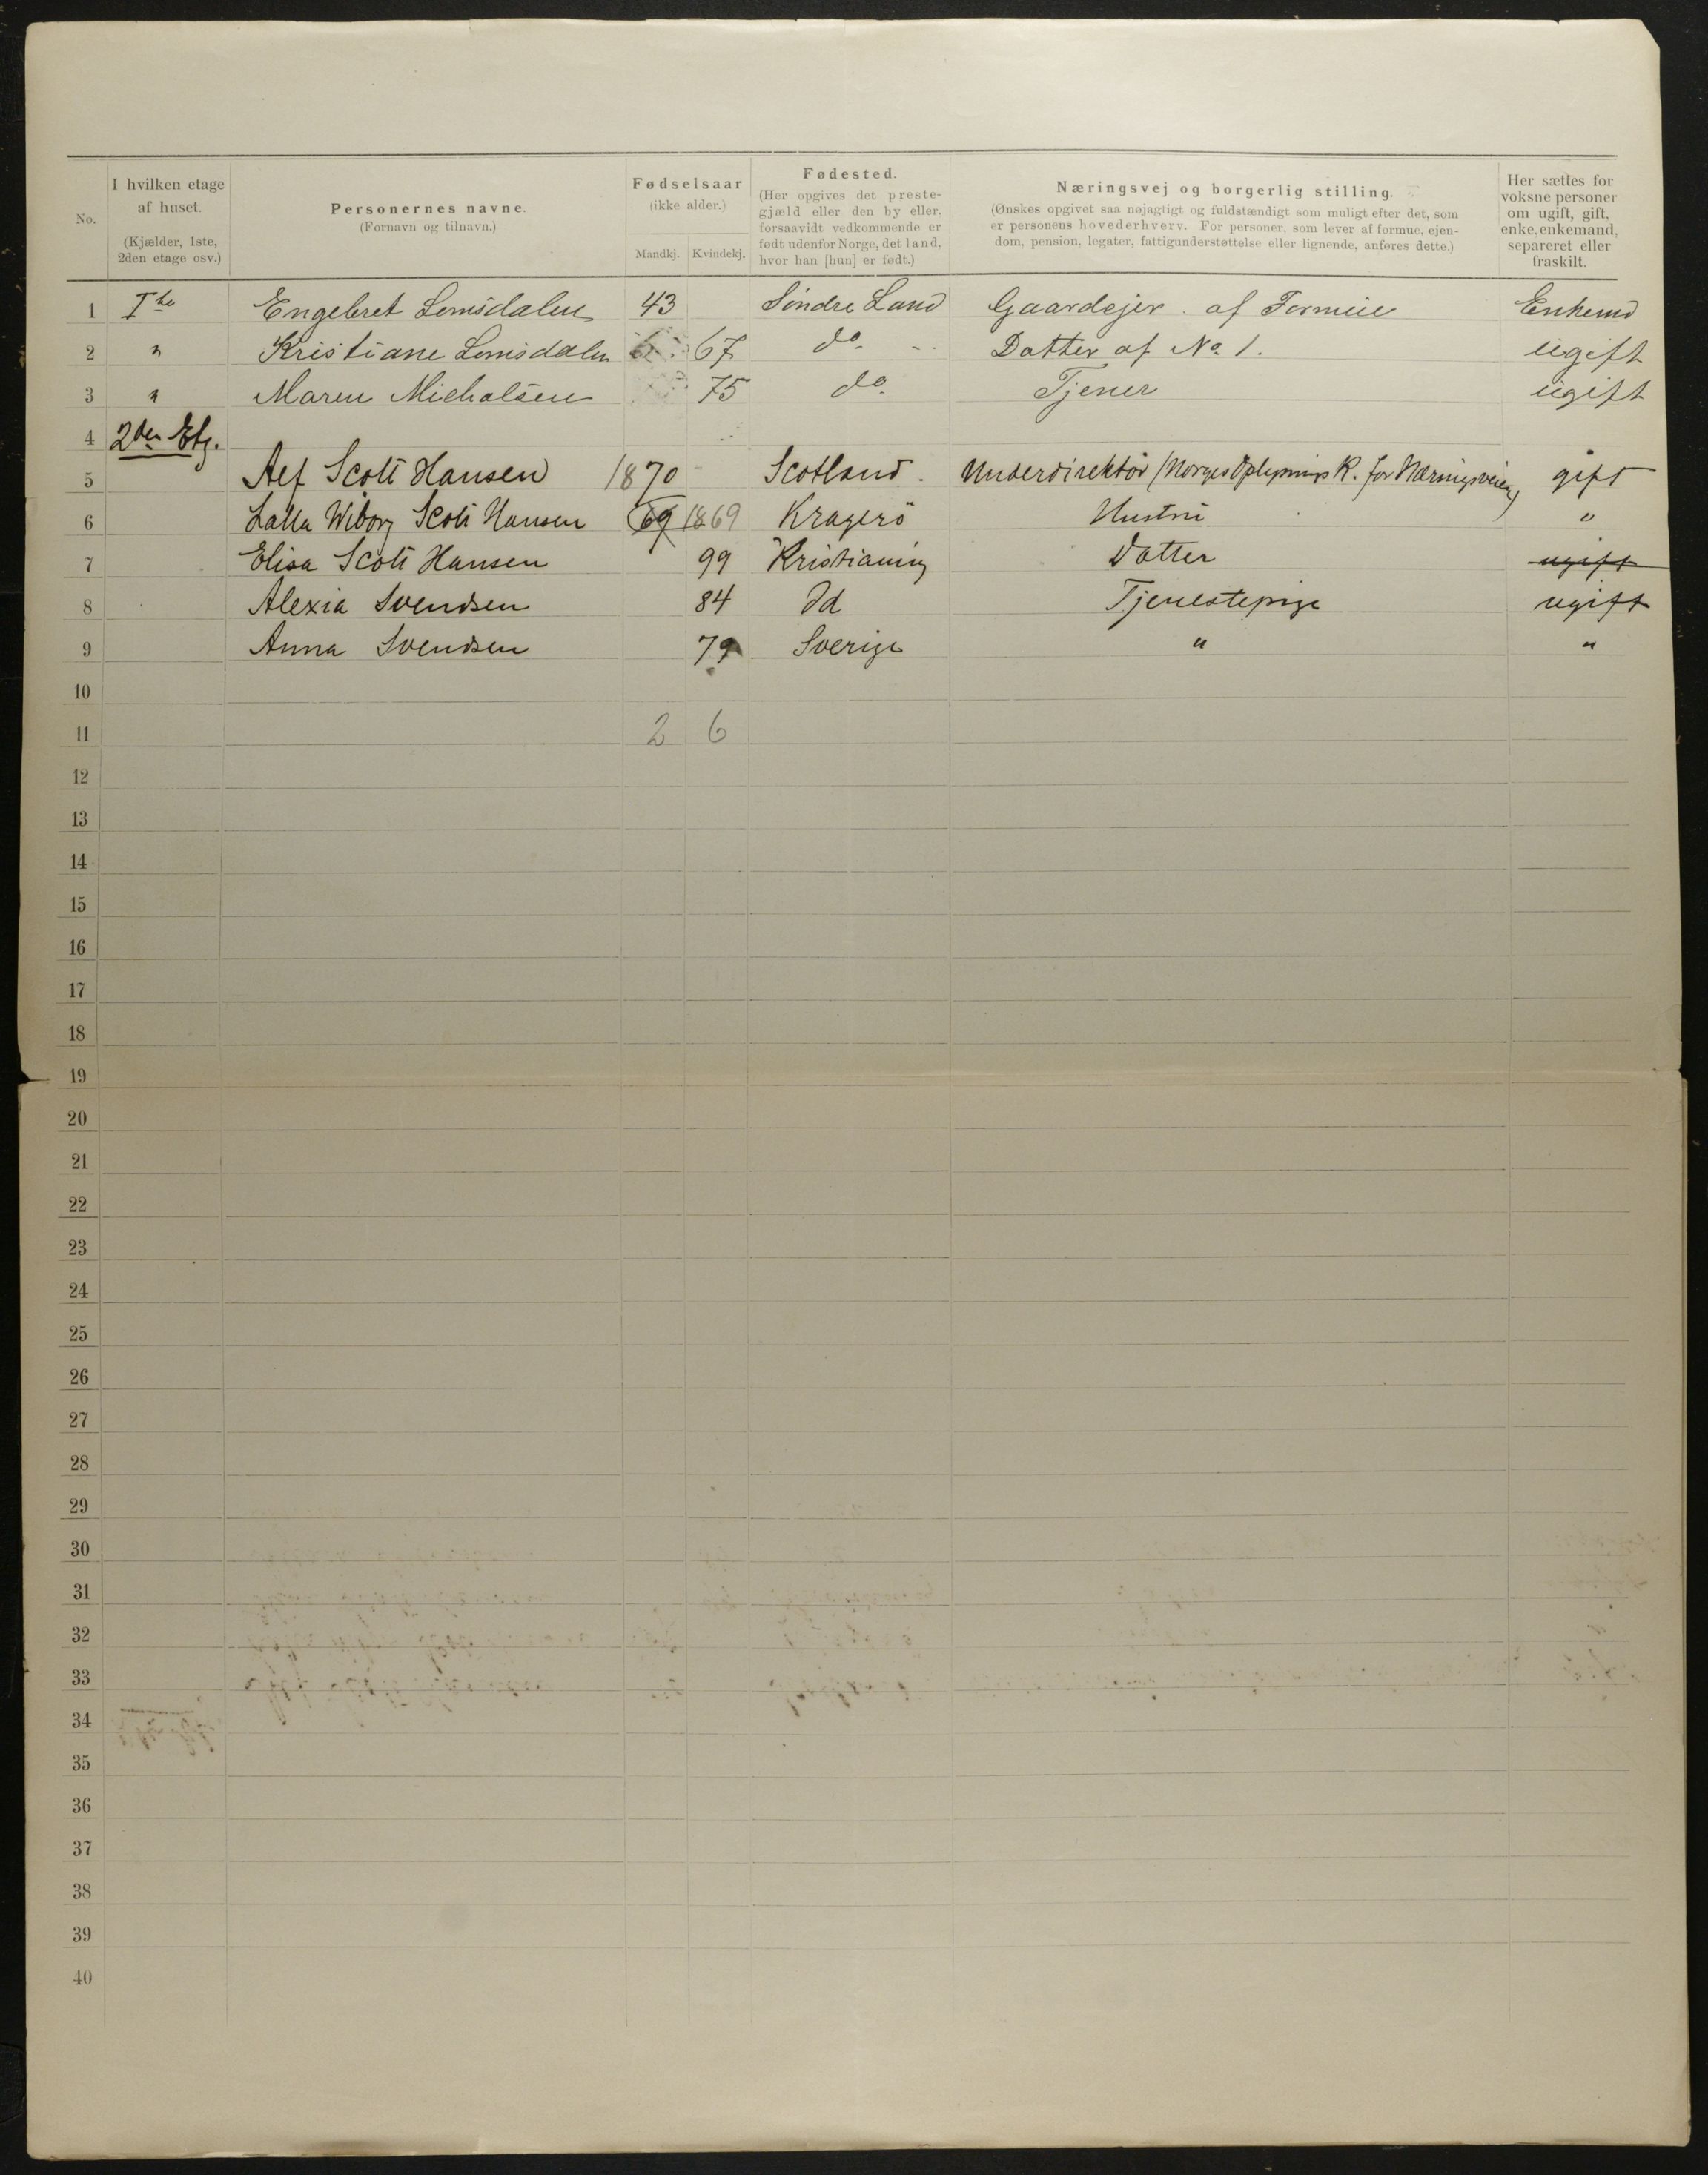 No.
I hvilken etage af huset.
(Kjælder, 1ste, 2den etage osv.)
Personernes navne.
(Fornavn og tilnavn.)
Fødselsaar
(ikke alder.)
Mandkj. Kvindekj.
Fødested.
(Her opgives det prestegjæld eller den by eller, forsaavidt vedkommende er født udenfor Norge, det land, hvor han [hun] er født.)
Næringsvej og borgerlig stilling.
(Ønskes opgivet saa nøjagtigt og fuldstændigt som muligt efter det, som er personens hovederhverv. For personer, som lever af formue, ejendom, pension, legater, fattigunderstøttelse eller lignende, anføres dette.)
Her sættes for voksne personer om ugift, gift, enke, enkemand, separeret eller fraskilt.
1 Engebret Lomsdalen 43 Söndre Land Gaardejer af Formue Enkemd
2 " Kristiane Lomsdalen 67 do Datter af No 1. ugift
3 " Maren Michalsen 75 do Tjener ugift
4 2den Etg.
5 Alf Scott Hansen 1870 Scotland. Underdirektör (Norges Oplysnings K. for Næringsveien) gift
6 Lalla Wiborg Scott Hansen 69 1869 Kragerö Hustru "
7 Elisa Scott Hansen 99 Kristiania Datter ugift
8 Alexia Svendsen 84 Id Tjenestepige ugift
9 Anna Svendsen 79 Sverige " "
10
11 2 6
12
13
14
15
16
17
18
19
20
21
22
23
24
25
26
27
28
29
30
31
32
33
34
35
36
37
38
39
40